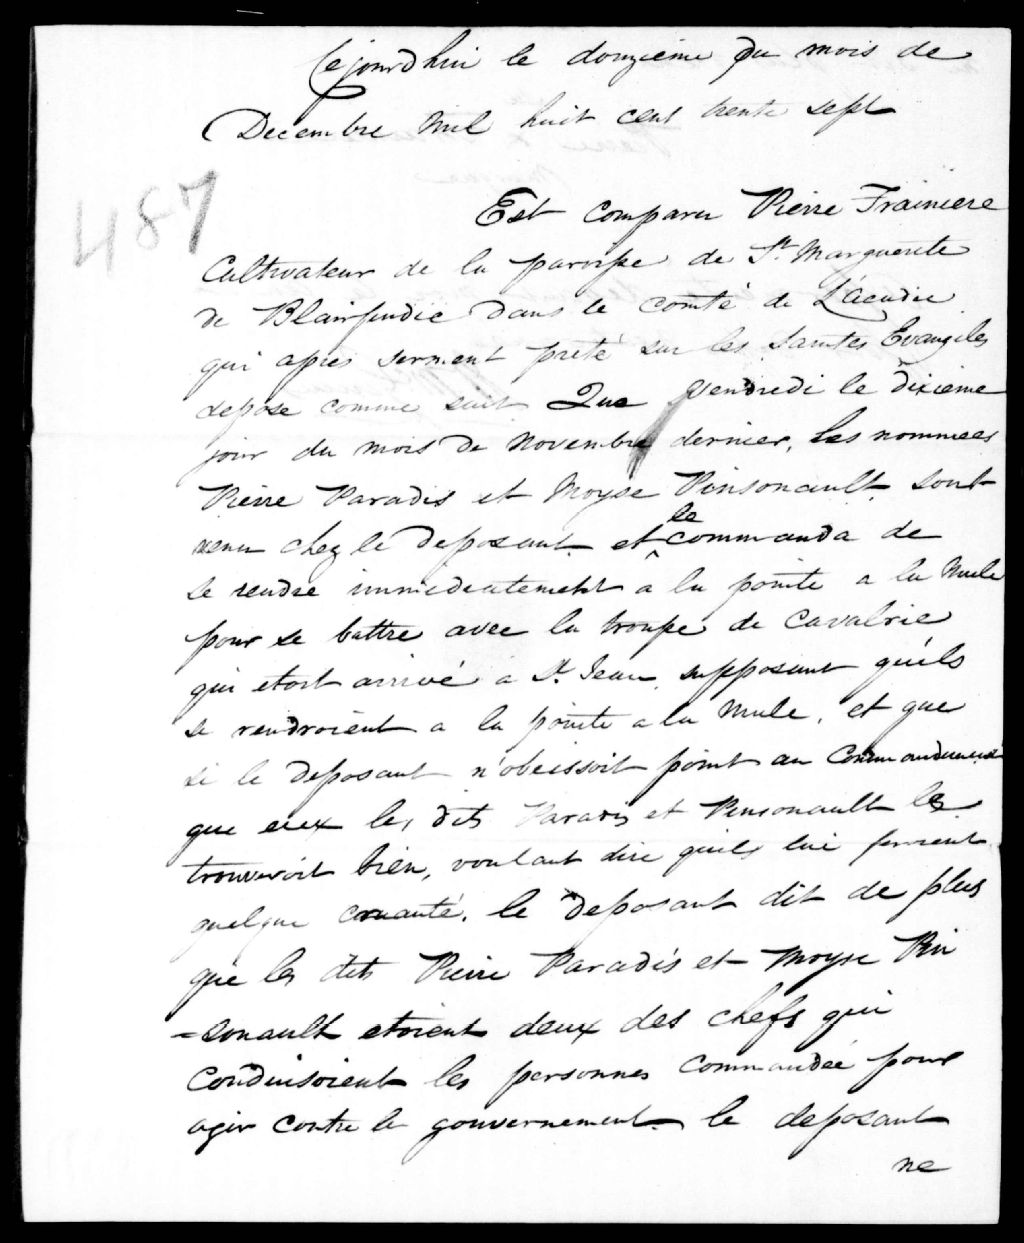 Cejourdhui le douzieme du mois de
Decembre Mil huit cent trente sept
487
Est comparu Pierre Frainiere
Cultivateur de la paroisse de Ste Marguerite
de Blairfindie dans le comté de L'acadie
qui apres serment preté sur les Saintes Evangiles
depose comme suit Que Vendredi le dixieme
jour du mois de Novembre dernier, les nommees
Pierre Paradis et Moyse Pinsonault sont
venu chez le deposant et le commanda de
se rendre immediatement a la pointe a la Mule
pour se battre avec la troupe de Cavalrie
qui etoit arrivé a St. Jean, supposant qu'ils
se rendroient a la pointe a la Mule, et que
si le deposant n'obeissoit point au Commandement
que eux les dits Paradis et Pinsonault le
trouveroit bien, voulant dire quils lui feroient
quelque cruauté. le deposant dit de plus
que les dits Pierre Paradis et Moyse Pin
=sonault etoient deux des chefs qui
Conduisoient les personnes commandée pour
agir contre le gouvernement. le deposant
ne